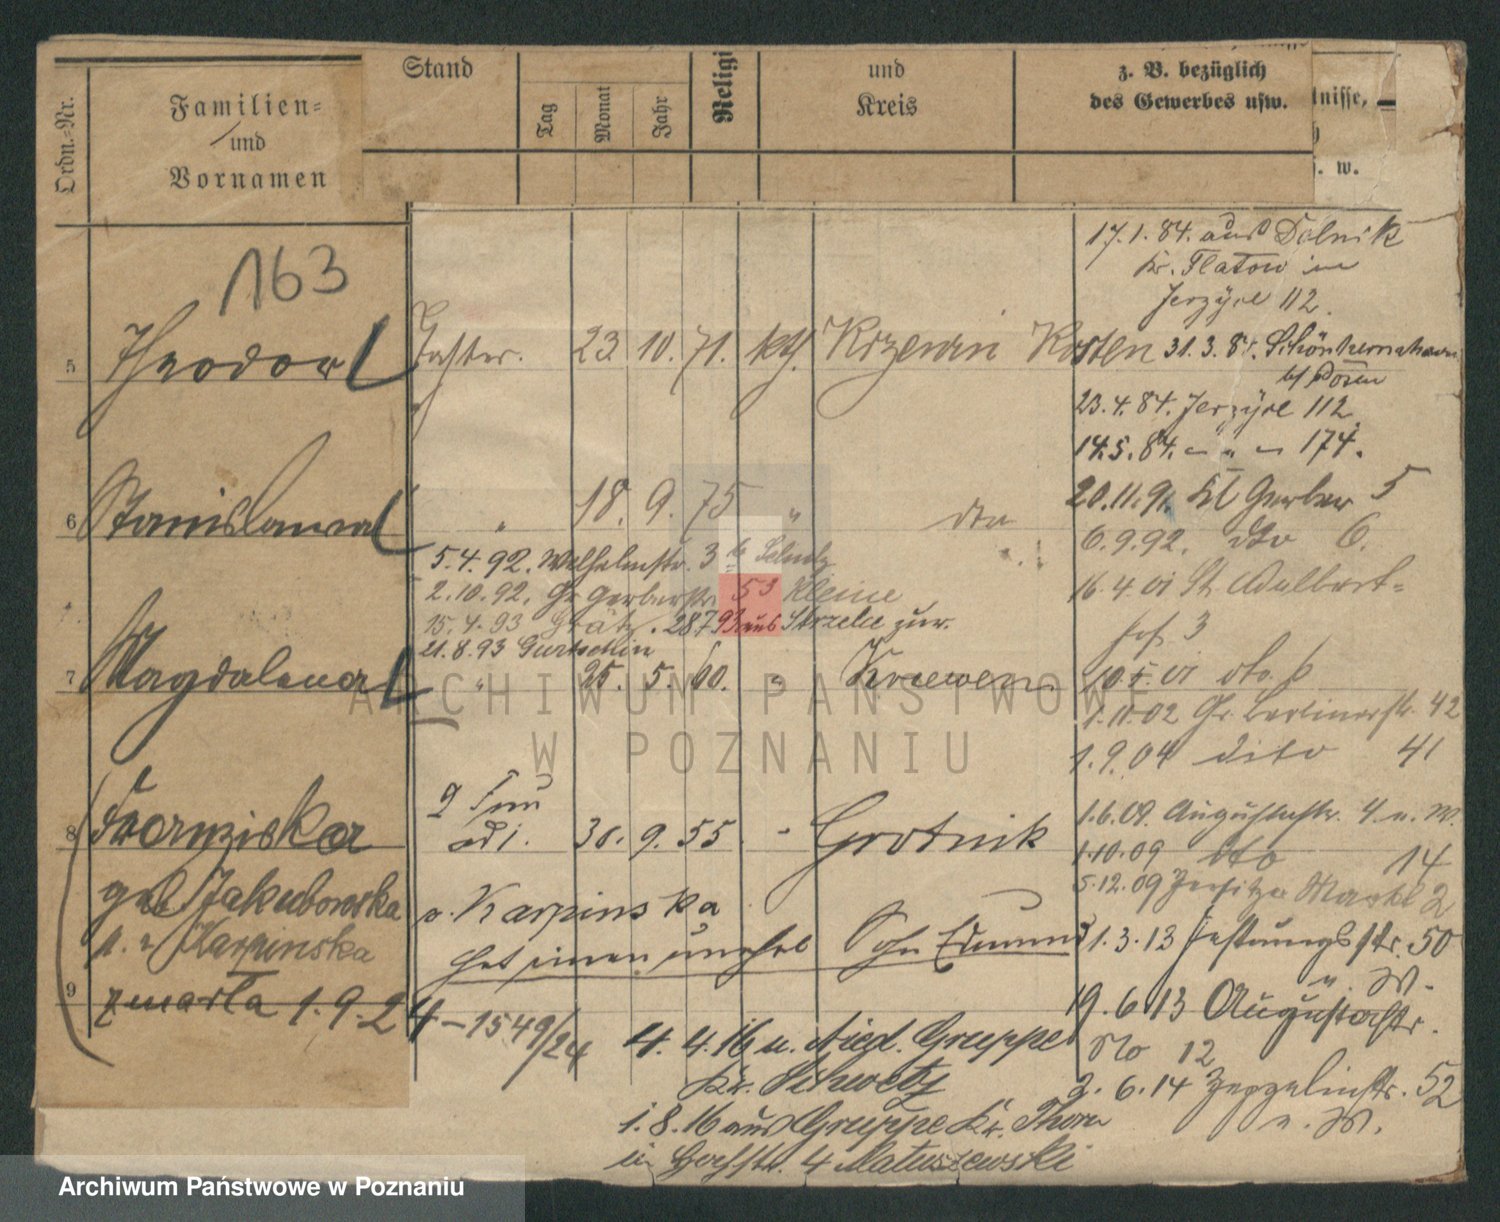 Ordn.=Nr.
Familien=
und
Vornamen
Stand
Tag
Monat
Jahr
Religi
und
Kreis
z. B. bezüglich
des Gewerbes usw.
tnisse,
. w.
163
17.1.84. aus Dolnik
Kr. Flatow in
Jerzyce 112
5 Theodor 23. 10. 71. kth. Krzewin Kosten 31.3.84.
b/ Posen
23.4.84. Jerzyce 112
14.5.84. " " " 174.
6 Stanislawa " 18. 9. 75 " dto
20.11.91. Kl Gerber 5
6.9.92. dto 6.
5.4.92. Wilhelmstr. 3 b
2.10.92. Gr Gerberstr. 53 Kleine
15.4.93 Grätz. 28793 aus zur.
21.8.93 Gurtschin
16.4.01 St. Adalbert=
hof. 3
7 Magdalena " 25. 5. 60. " Kriewen
10.5.01 dto. 6
1.11.02 Gr. Berlinerstr. 42
1.9.04 dito 41
8 Franziska 30. 9. 55 " Grotnik
1.6.09. Augustastr. 4. n. W.
1.10.09 dto 14
geb Jakubowska
5.12.09 Jersitze Markt 2
v. Karpinska
hat einen unehel Sohn Edmund
1.3.13 Festungsstr. 50
n. W.
Karpinska
9 zmarła 1.9.24 – 1549/24
19.6.13 Augustastr.
No 12
4. 4. 16 n. Nied. Gruppe
Kr. Schwetz
2.6.14 Zeppelinstr. 52
n. W.
1.8.16 aus Gruppe Kr. Thorn
in 4 Matuszewski
ARCHIWUM PAŃSTWOWE
W POZNANIU
Archiwum Państwowe w Poznaniu